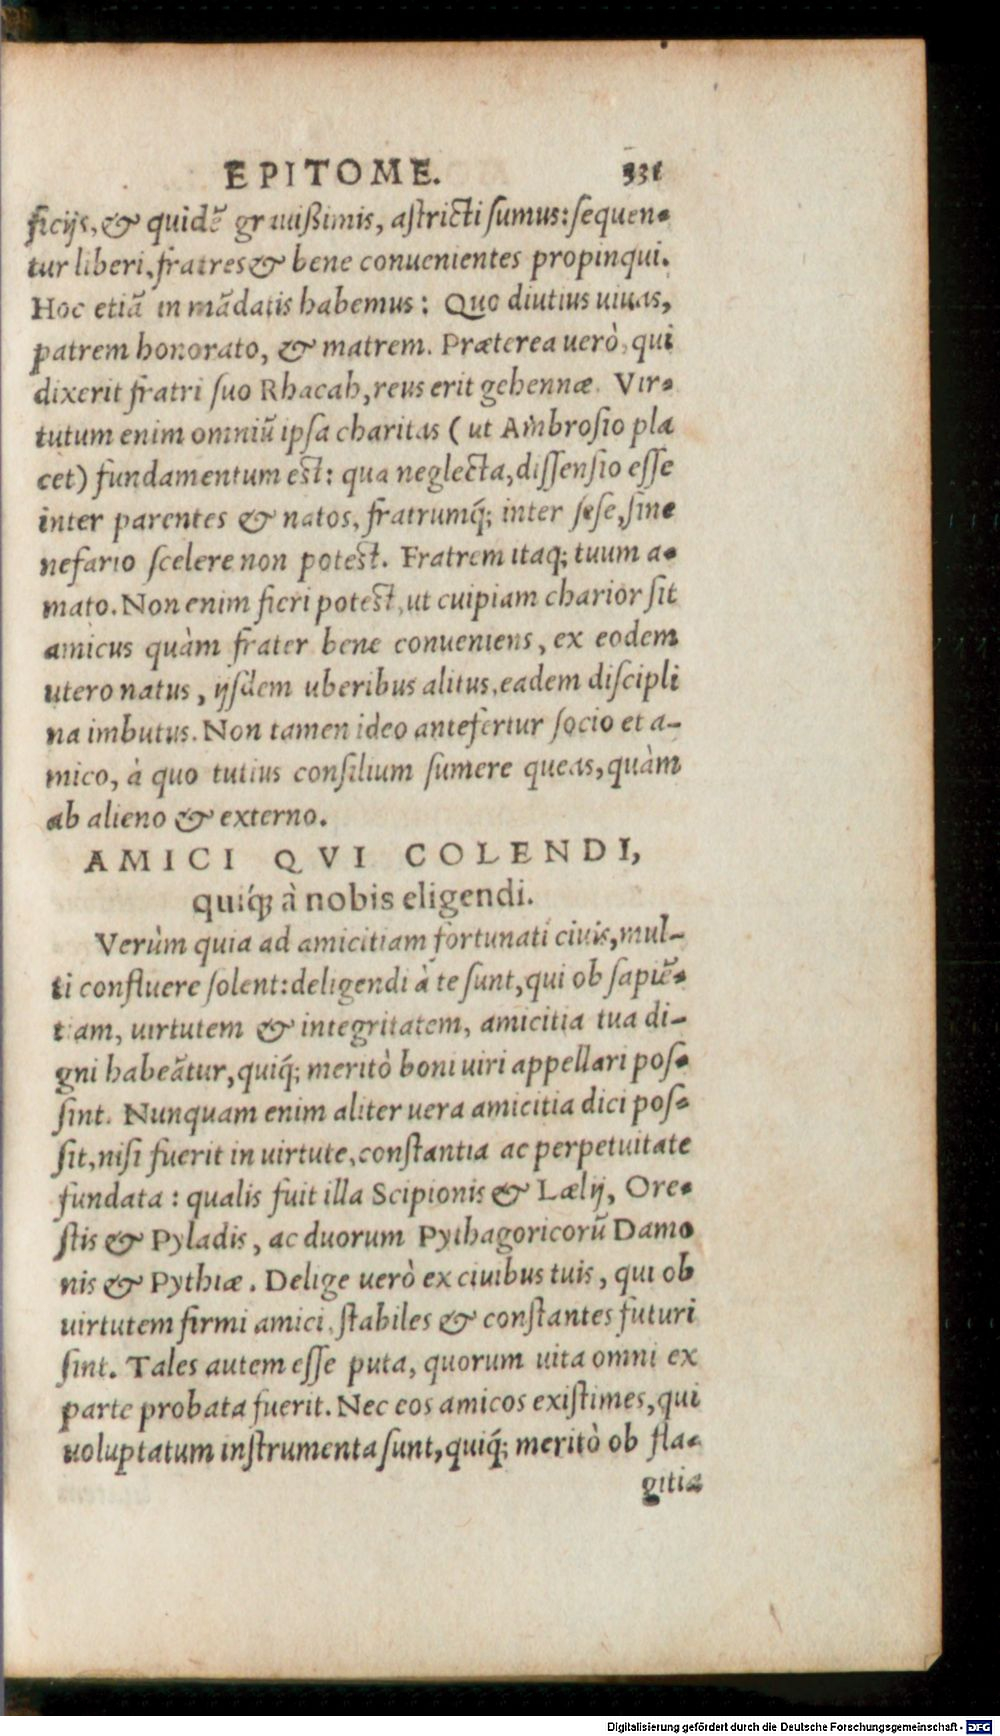 EPITOME. 331
ficijs, & quidẽ grauißimis, astricti sumus: sequen-
tur liberi, fratres & bene conuenientes propinqui.
Hoc etiã in mãdatis habemus: Quo diutius uiuas,
patrem honorato, & matrem. Præterea uerò, qui
dixerit fratri suo Rhacah, reus erit gehennæ. Vir-
tutum enim omniũ ipsa charitas ( ut Ambrosio pla
cet) fundamentum est: qua neglecta, dissensio esse
inter parentes & natos, fratrumq́; inter sese, sine
nefario scelere non potest. Fratrem itaq; tuum a-
mato. Non enim fieri potest, ut cuipiam charior sit
amicus quàm frater bene conueniens, ex eodem
utero natus, ijsdem uberibus alitus, eadem discipli
na imbutus. Non tamen ideo antefertur socio et a-
mico, à quo tutius consilium sumere queas, quàm
ab alieno & externo.
AMICI QVI COLENDI,
quiq́; à nobis eligendi.
Verùm quia ad amicitiam fortunati ciuis, mul-
ti confluere solent: deligendi à te sunt, qui ob sapiẽ-
tiam, uirtutem & integritatem, amicitia tua di-
gni habeãtur, quiq́; meritò boni uiri appellari pos-
sint. Nunquam enim aliter uera amicitia dici pos-
sit, nisi fuerit in uirtute, constantia ac perpetuitate
fundata: qualis fuit illa Scipionis & Lælij, Ore-
stis & Pyladis, ac duorum Pythagoricorũ Damo
nis & Pythiæ. Delige uerò ex ciuibus tuis, qui ob
uirtutem firmi amici, stabiles & constantes futuri
sint. Tales autem esse puta, quorum uita omni ex
parte probata fuerit. Nec eos amicos existimes, qui
uoluptatum instrumenta sunt, quiq́; meritò ob fla-
gitia
Digitalisierung gefördert durch die Deutsche Forschungsgemeinschaft - DFG